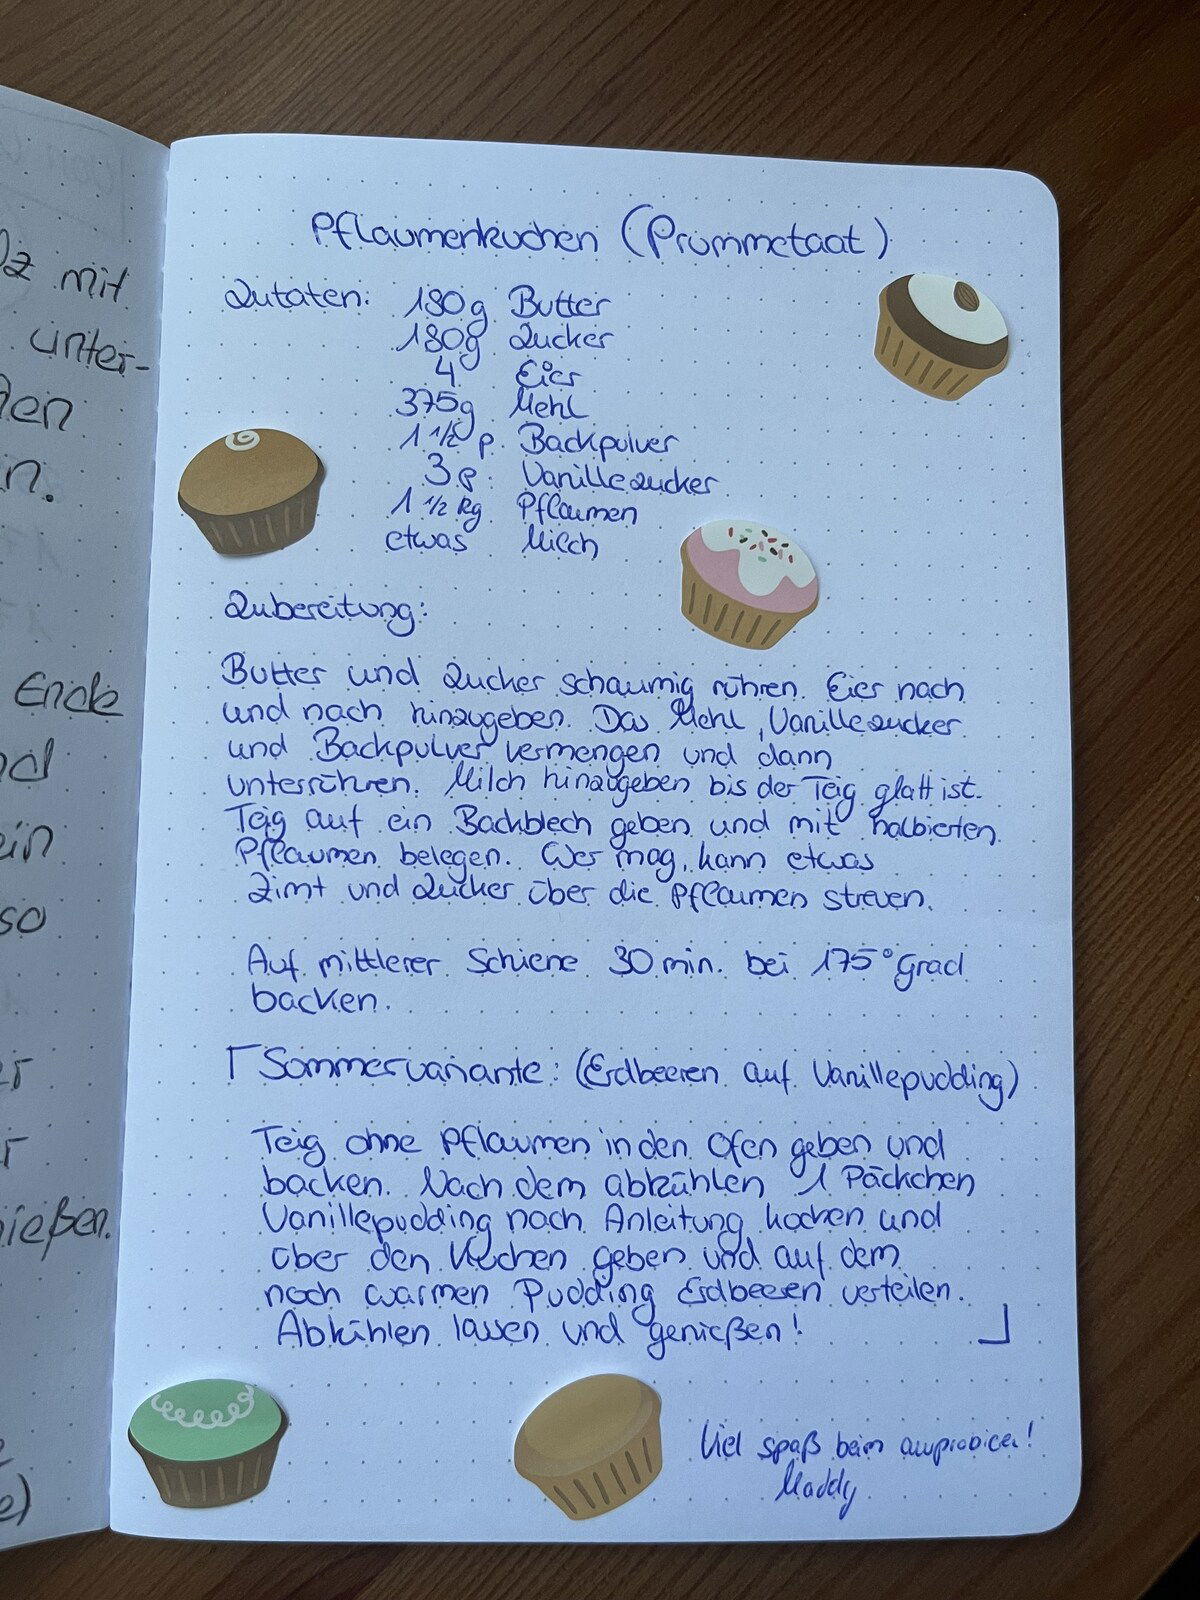 Oz mit
unter-
n.
Ende
ein
so
ießen.
e)
Pflaumenkuchen (Prummetaat)
Zutaten: 180g Butter
180g Zucker
4 Eier
375g Mehl
1 1/2 P. Backpulver
3 P. Vanillezucker
1 1/2 kg Pflaumen
etwas Milch
Zubereitung:
Butter und Zucker schaumig rühren. Eier nach
und nach hinzugeben. Das Mehl, Vanillezucker
und Backpulver vermengen und dann
unterrühren. Milch hinzugeben bis der Teig glatt ist.
Teig auf ein Backblech geben und mit halbierten
Pflaumen belegen. Wer mag, kann etwas
Zimt und Zucker über die Pflaumen streuen.
Auf mittlerer Schiene 30 min. bei 175° Grad
backen.
Sommervariante: (Erdbeeren auf Vanillepudding)
Teig ohne Pflaumen in den Ofen geben und
backen. Nach dem abkühlen 1 Päckchen
Vanillepudding nach Anleitung kochen und
über den Kuchen geben und auf dem
noch warmen Pudding Erdbeeren verteilen.
Abkühlen lassen und genießen!
Viel spaß beim ausprobieren!
Maddy